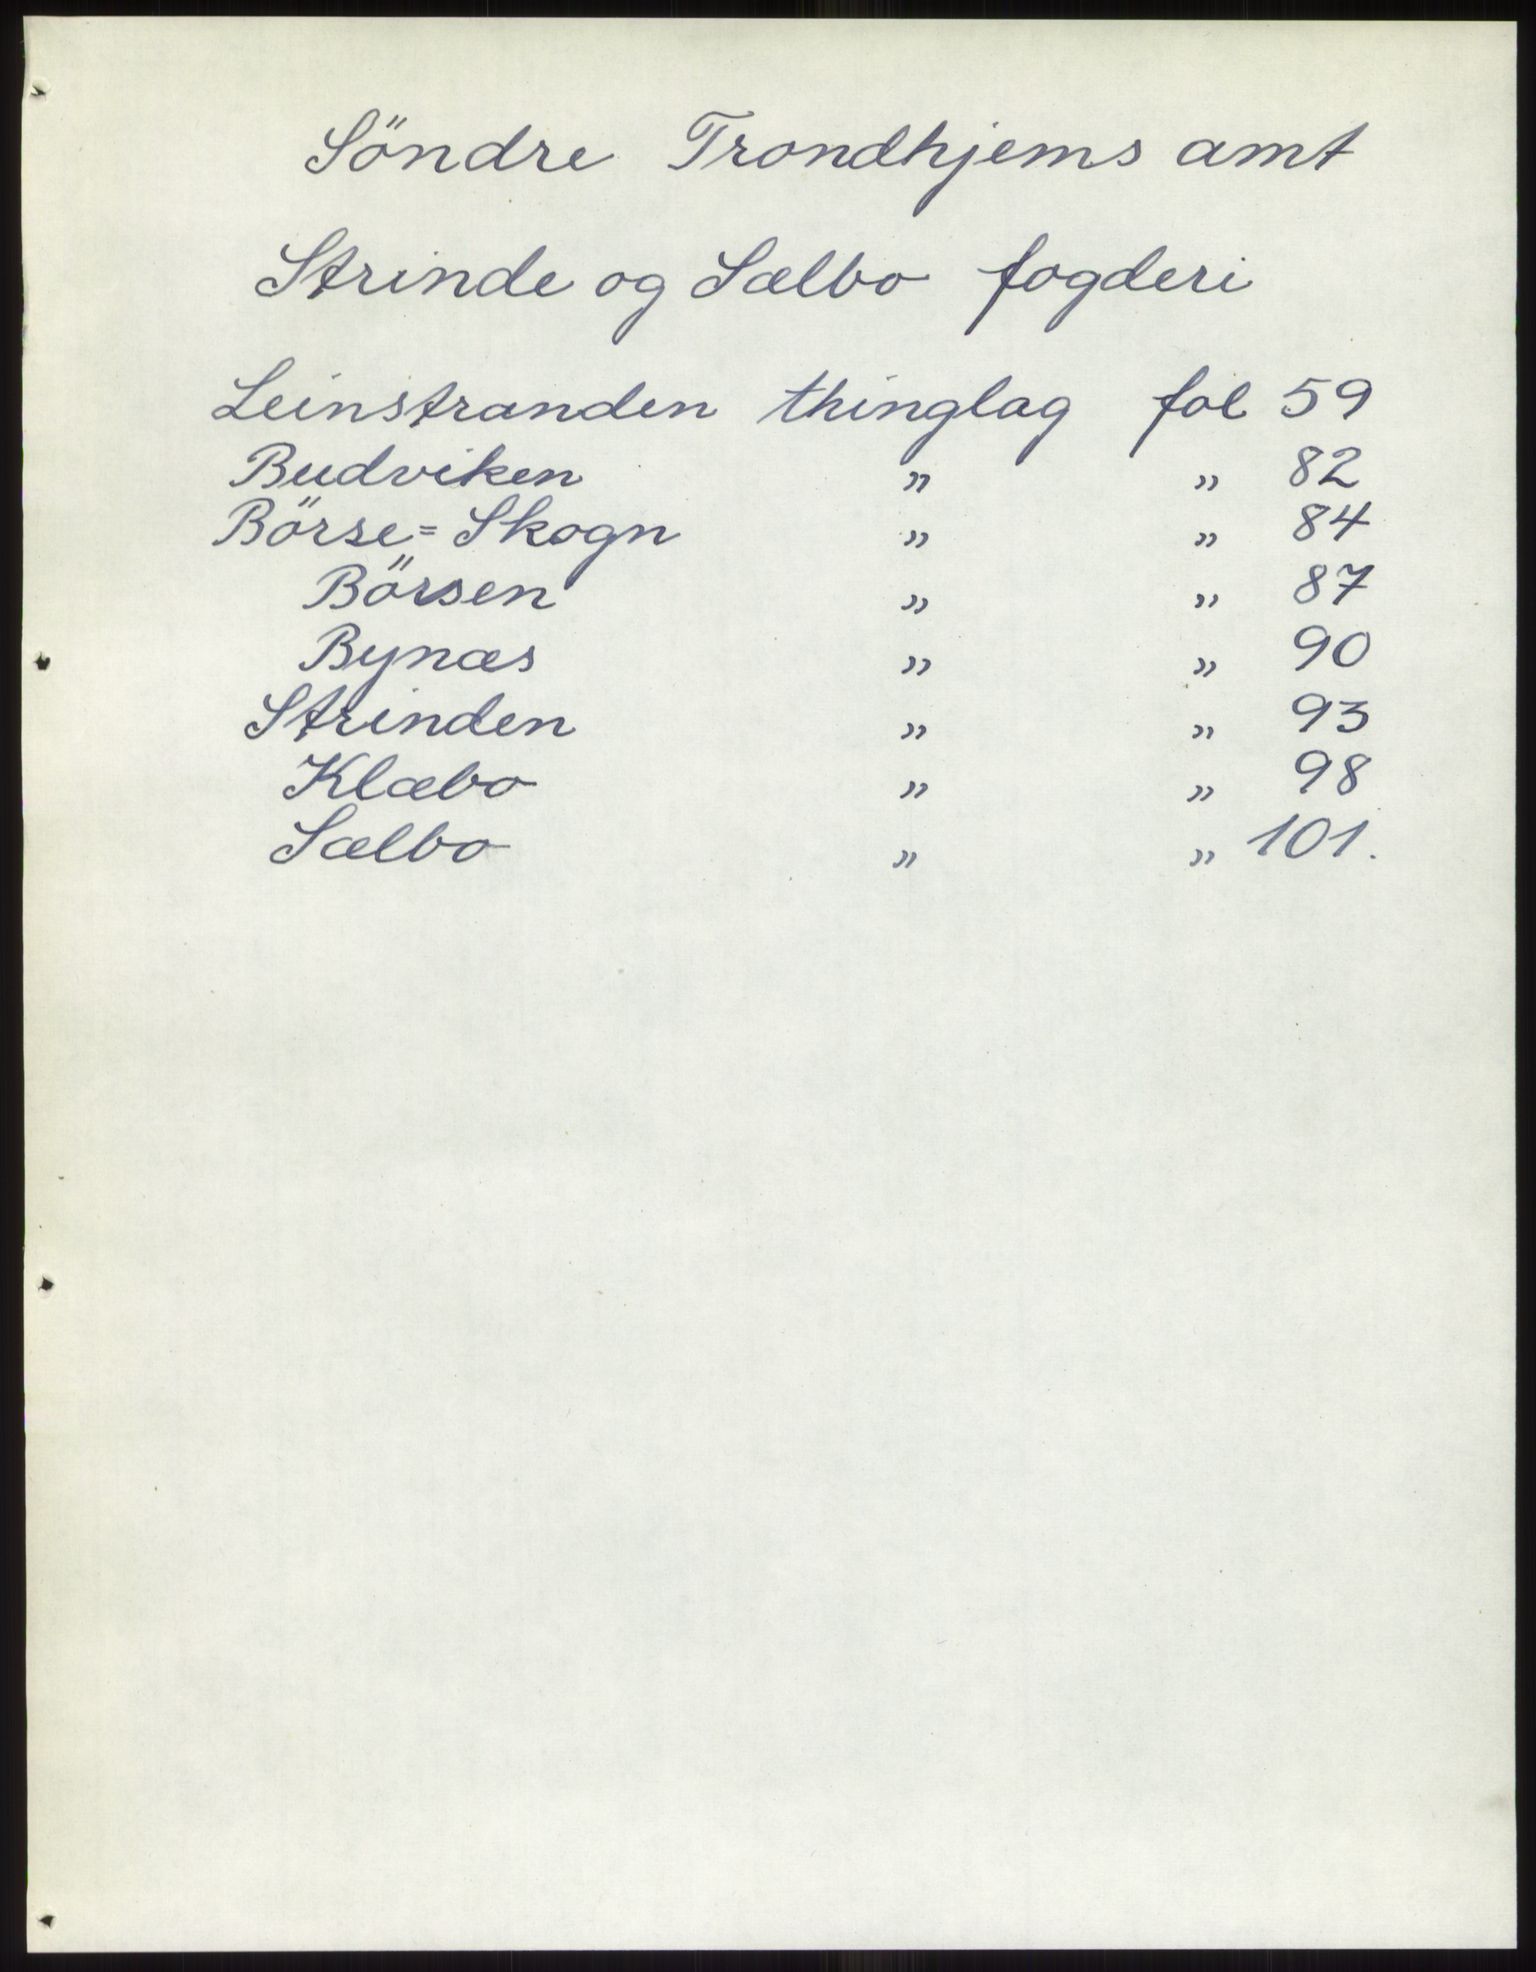 Söndre Trondhjems amt
Strinde og Sælbo fogderi
Leinstranden thinglag fol 59
Budviken " " 82
Börse= Skogn " " 84
Börsen " " 87
Bynæs " " 90
Strinden " " 93
Klæbo " " 98
Sælbo " " 101.